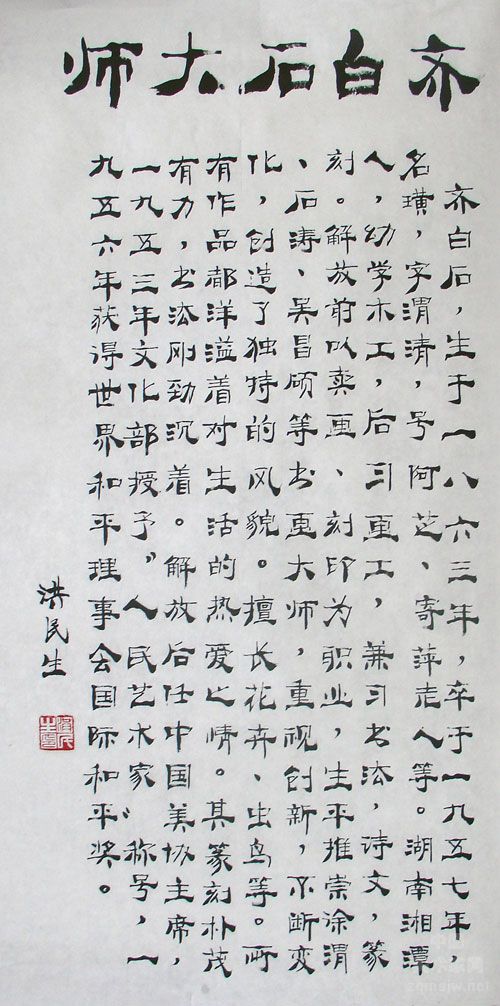 齐白石大师
齐白石，生于一八六三年，卒于一九五七年，
名璜，字渭清，号阿芝、寄萍老人等。湖南湘潭
人，幼学木工，后习画工，兼习书法，诗文，篆
刻。解放前以卖画、刻印为职业，生平推崇徐渭
、石涛、吴昌硕等书画大师，重视创新，不断变
化，创造了独特的风貌。擅长花卉、虫鸟等。所
有作品都洋溢着对生活的热爱之情。其篆刻朴茂
有力，书法刚劲沉着。解放后任中国美协主席，
一九五三年文化部授予“人民艺术家”称号，一
九五六年获得世界和平理事会国际和平奖。
洪民生
zgmsjw.net